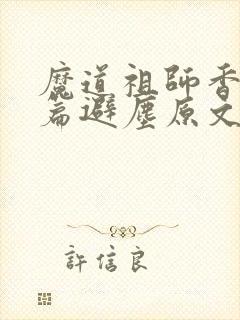 魔道祖師香
篇避塵原文
許信良